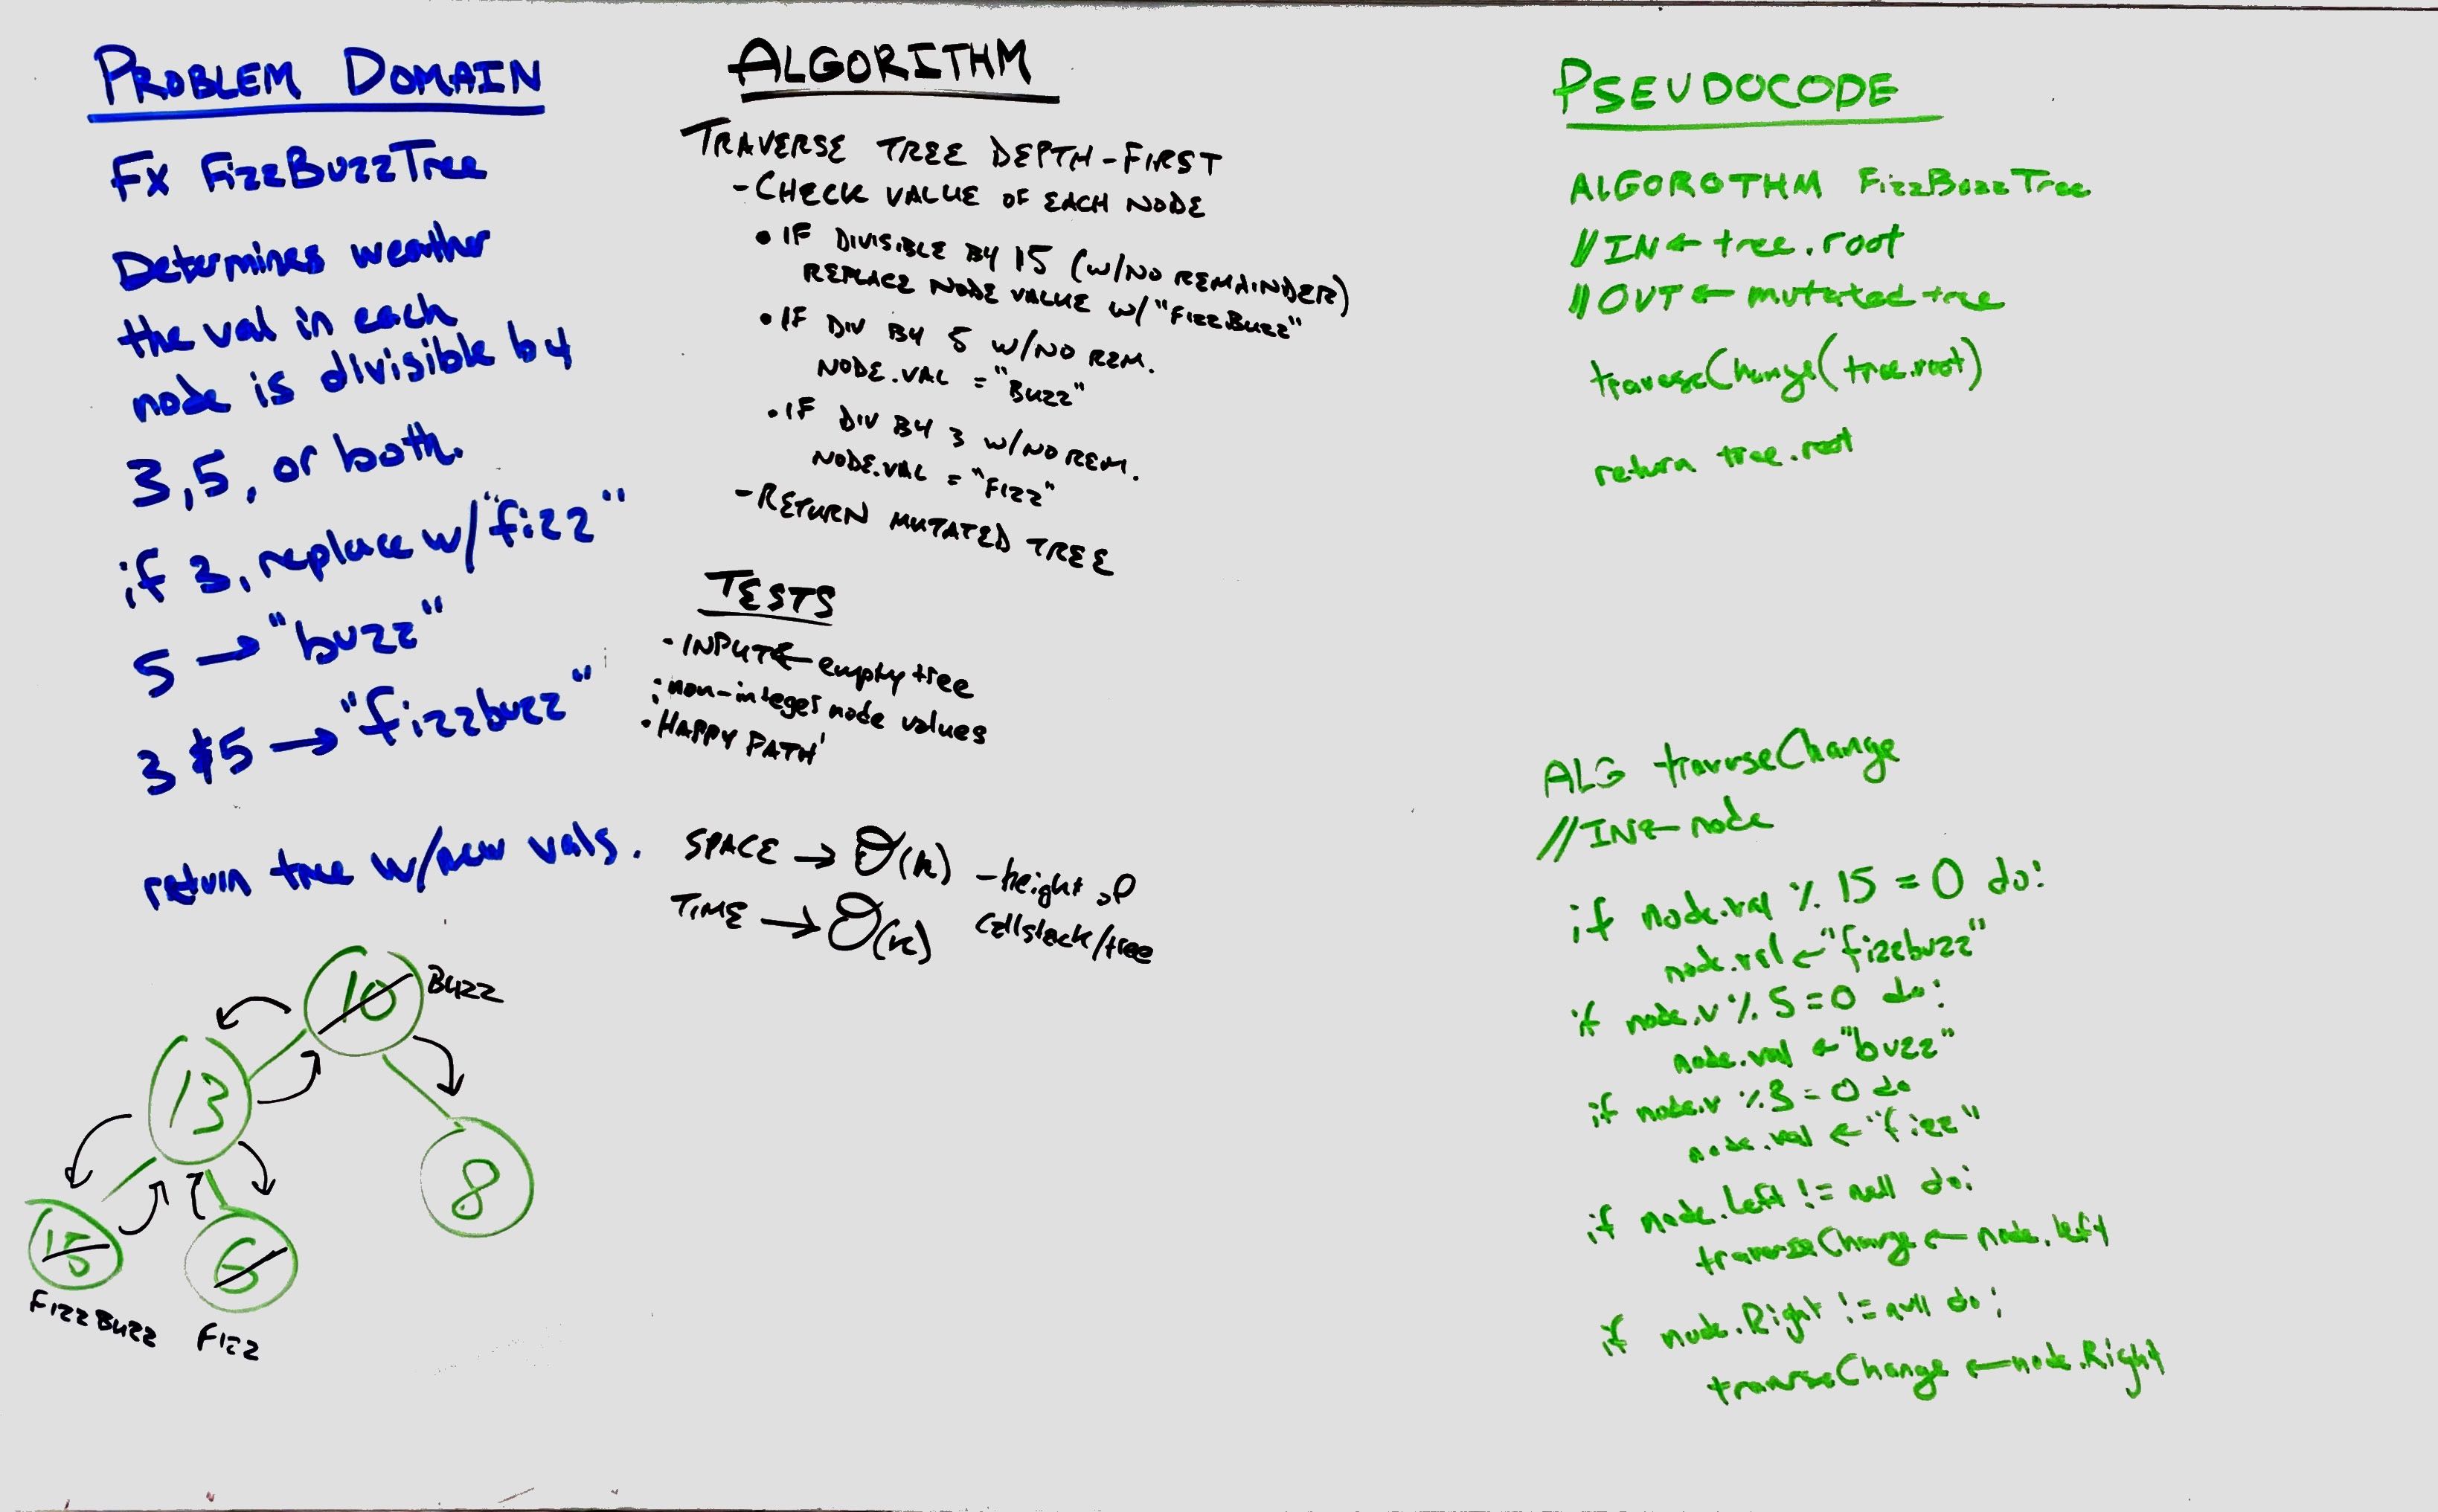 PROBLEM DOMAIN
Fx FizzBuzzTree
Determines weather
the val in each
node is divisible by
3,5, or both.
if 3, replace w/"fizz"
5 → "buzz"
3 & 5 → "fizzbuzz"
return tree w/new vals.
10 Buzz
13
8
15
6
FizzBuzz
Fizz
ALGORITHM
TRAVERSE TREE DEPTH-FIRST
- CHECK VALUE OF EACH NODE
• IF DIVISIBLE BY 15 (W/NO REMAINDER)
REPLACE NODE VALUE W/ "FIZZBUZZ"
• IF DIV BY 5 W/NO REM.
NODE.VAL = "BUZZ"
• IF DIV BY 3 W/NO REM.
NODE.VAL = "FIZZ"
- RETURN MUTATED TREE
TESTS
- INPUT ← empty tree
: non-integer node values
• HAPPY PATH
SPACE → O(h) - height of
callstack/tree
TIME → O(n)
PSEUDOCODE
ALGOROTHM FizzBuzzTree
//IN ← tree.root
//OUT ← mutated tree
traverseChange(tree.root)
return tree.root
ALG traverseChange
//IN ← node
if node.val % 15 = 0 do:
node.val ← "fizzbuzz"
if node.v % 5 = 0 do:
node.val ← "buzz"
if node.v % 3 = 0 do
node.val ← "fizz"
if node.Left != null do:
traverseChange ← node.left
if node.Right != null do:
traverseChange ← node.Right